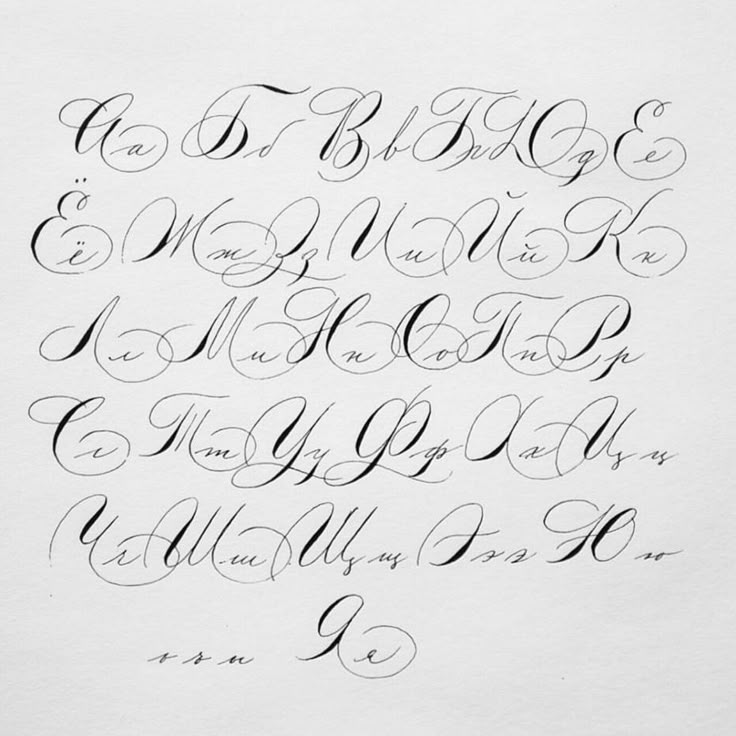 Аа Бб Вв Гг Дд Ее
Ёё Жж Зз Ии Йй Кк
Лл Мм Нн Оо Пп Рр
Сс Тт Уу Фф Хх Цц
Чч Шш Щщ Ээ Юю
Яя